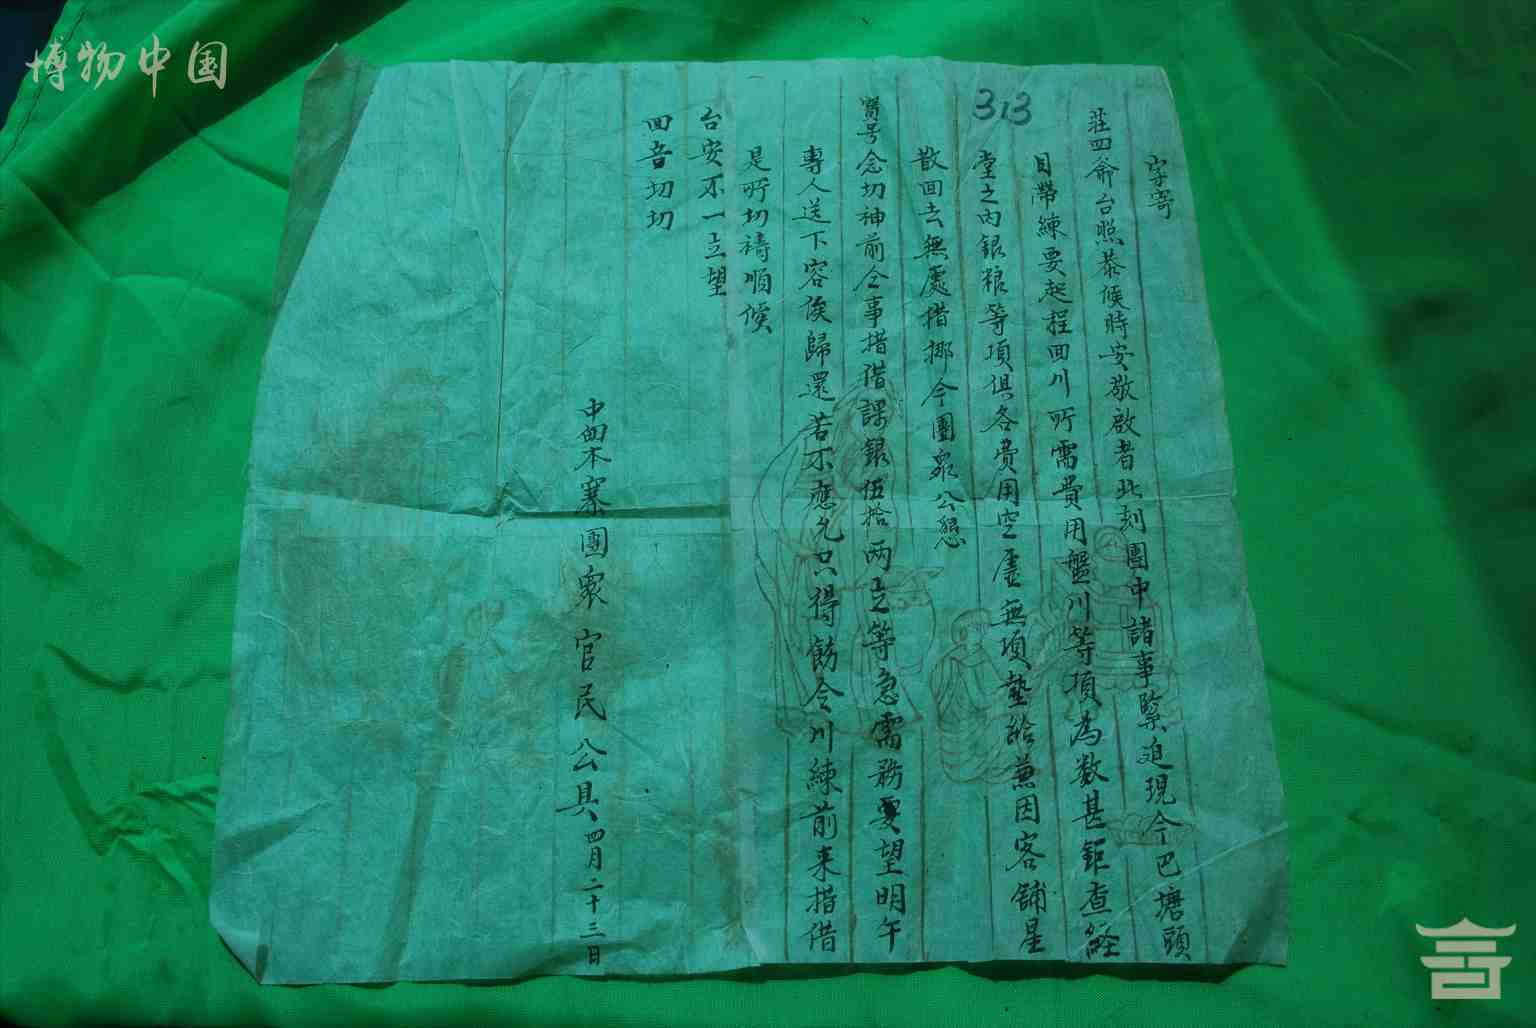 博物中国
313
字寄
莊四爺台照恭候時安敬啟者北刻團中諸事緊迫現今巴塘頭
目帶練要起程回川所需費用盤川等項為數甚鉅查經
堂之內銀粮等項俱各費用空虛無項墊給兼因客舖星
散回去無處措挪今團眾公懇
寶号念切神前公事措借課銀伍拾两立等急需務要望明午
專人送下容俟歸還若不應允只得飭令川練前来措借
是所切禱順候
台安不一立望
回音切切
中四本寨團眾官民公具四月二十三日